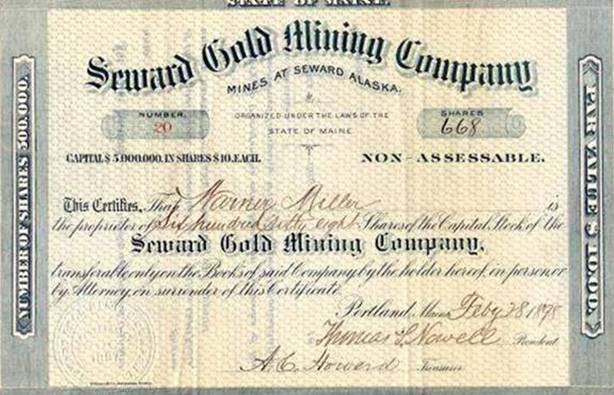 STATE OF MAINE.
Seward Gold Mining Company
MINES AT SEWARD ALASKA.
NUMBER.
20
ORGANIZED UNDER THE LAWS OF THE
STATE OF MAINE
SHARES
668
CAPITAL $5,000,000. IN SHARES $10. EACH.
NON-ASSESSABLE.
NUMBER OF SHARES 500,000.
PAR VALUE $10.00.
This Certifies, That Warner Miller is
the proprietor of Six hundred sixty eight Shares of the Capital Stock of the
Seward Gold Mining Company,
transferable only on the Books of said Company by the holder hereof, in person or
by Attorney, on surrender of this Certificate.
Portland, Maine Feby 28 1898
Thomas S. Nowell President
A. C. Howard Treasurer